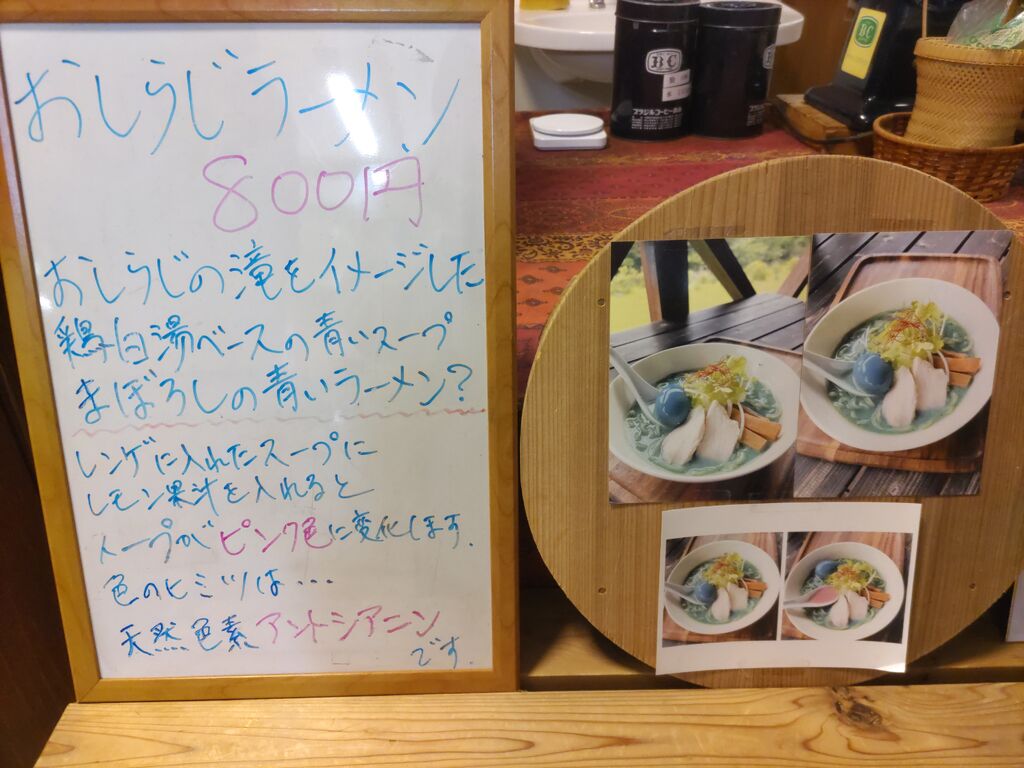 おしらじラーメン
800円
おしらじの滝をイメージした
鶏白湯ベースの青いスープ
まぼろしの青いラーメン?
レンゲに入れたスープに
レモン果汁を入れると
スープが ピンク色に変化します.
色のヒミツは…
天然色素 アントシアニン
です.
BC
ブラジルコーヒー商会
BC